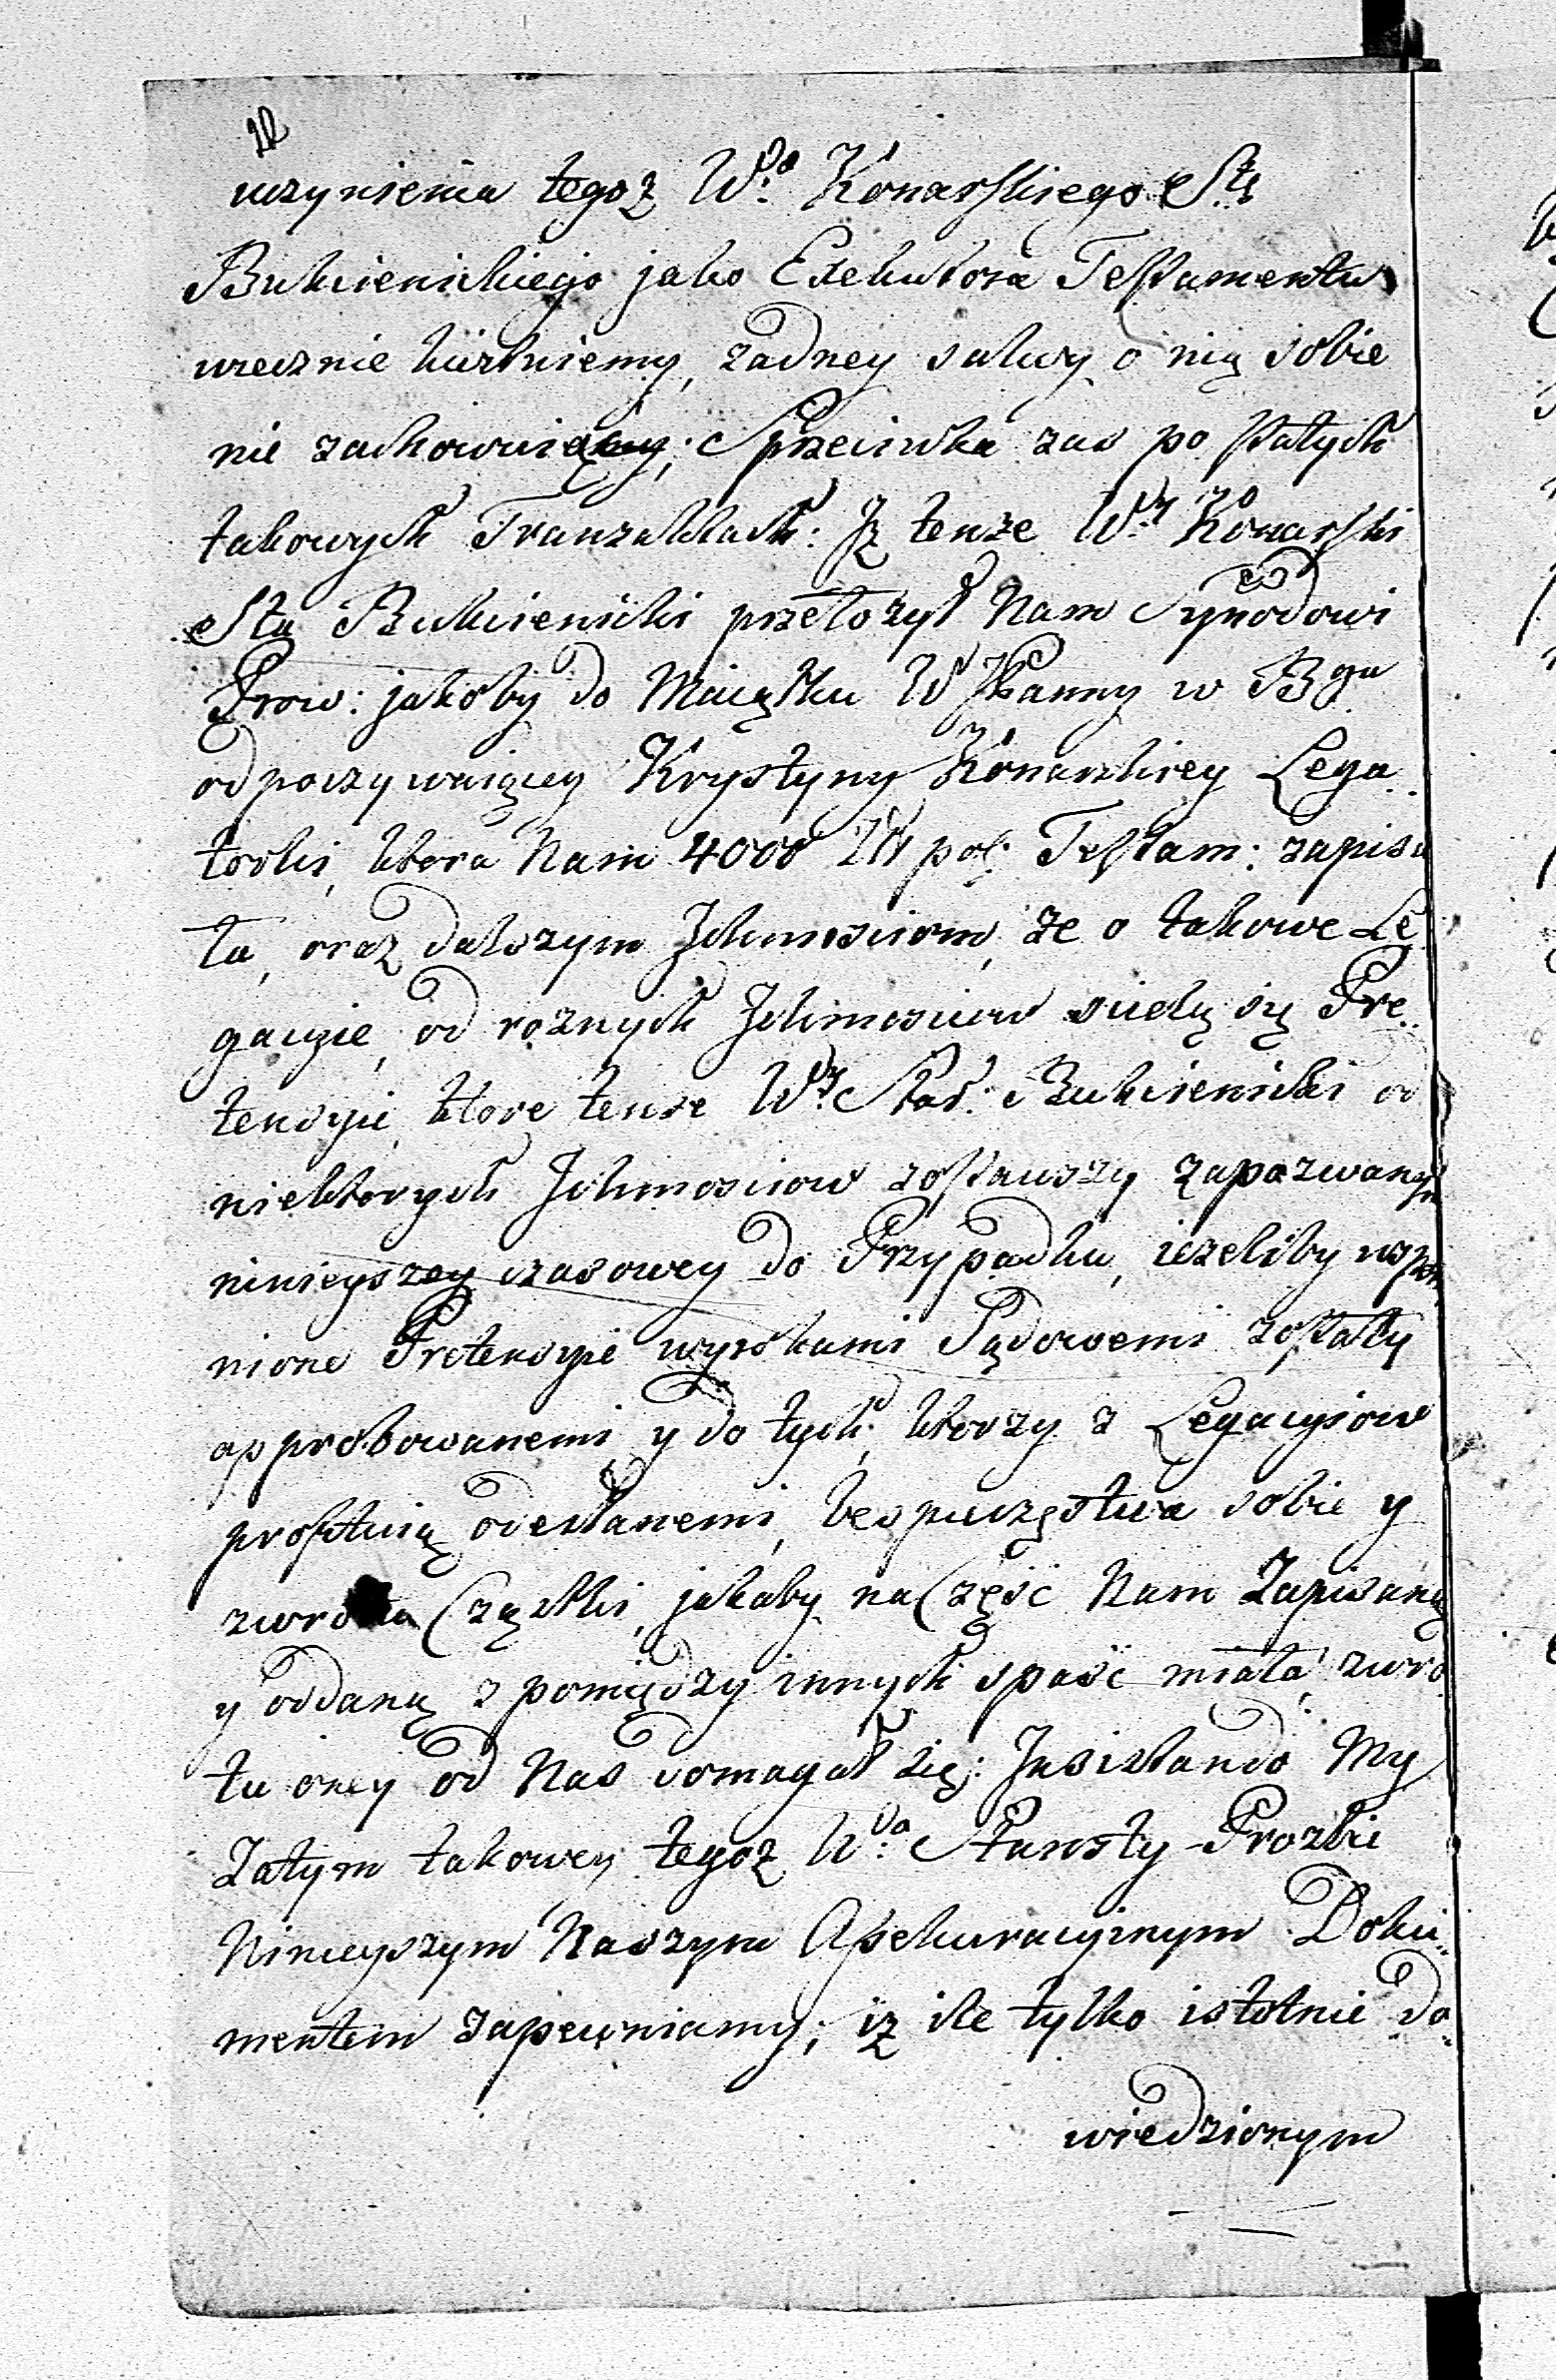 uczynienia tegoż W.go Konarskiego Sty
Bukcienickiego jako Exekutora Testamentu
wiecznie kwituiemy, żadney salwy o nią sobie
nie zachowuiemy; Sprzeciwka zaś po stałych
takowych Tranzaktach: Iż tenże W.y Konarski
Sta Bukcienicki przełożył Nam Synodowi
Prow: jakoby do Maiątku W Panny w Bgu
odpoczywaiącey Krystyny Konarskiey Lega
torki, ktora Nam 4000 Zł pol: Testam: zapisa
ła, oraz dalszym Ichmosciom, że o takowe Le
gacyie, od rożnych Ichmosciow scielą się Pre
tensyie, ktore tenże W.y Star: Bukcienicki od
niektorych Ichmosciow zostawszy zapozwanym
ninieyszey czasowey do Przypadku, ieżeliby wspom
nione Pretensyie wyrokami Sądowemi zostały
approbowanemi y do tych, ktorzy z Legacyiow
profituią odesłanemi, bespieczęstwa sobie y
zwrotu Cząstki, jakaby na Część Nam Zapisaną
y oddaną z pomiędzy innych spaść miała, zwro
tu oney od Nas domagał się; Insistando My
Zatym takowey tegoż W.go Starosty Prozbie
Ninieyszym Naszym Assekuracyinym Doku
mentem zapewniamy; iż ile tylko istotnie do
wiedzionym